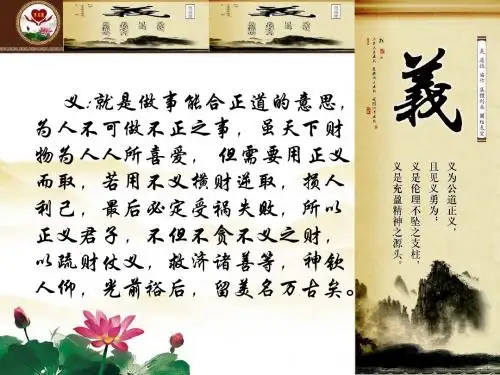 义:就是做事能合正道的意思，
为人不可做不正之事，虽天下财
物为人人所喜爱，但需要用正义
而取，若用不义横财逆取，损人
利己，最后必定受祸失败，所以
正义君子，不但不贪不义之财，
以疏财仗义，救济诸善等，神钦
人仰，光前裕后，留美名万古矣。
義
义为公道正义，
且见义勇为；
义是伦理不坠之支柱，
义是充盈精神之源头。